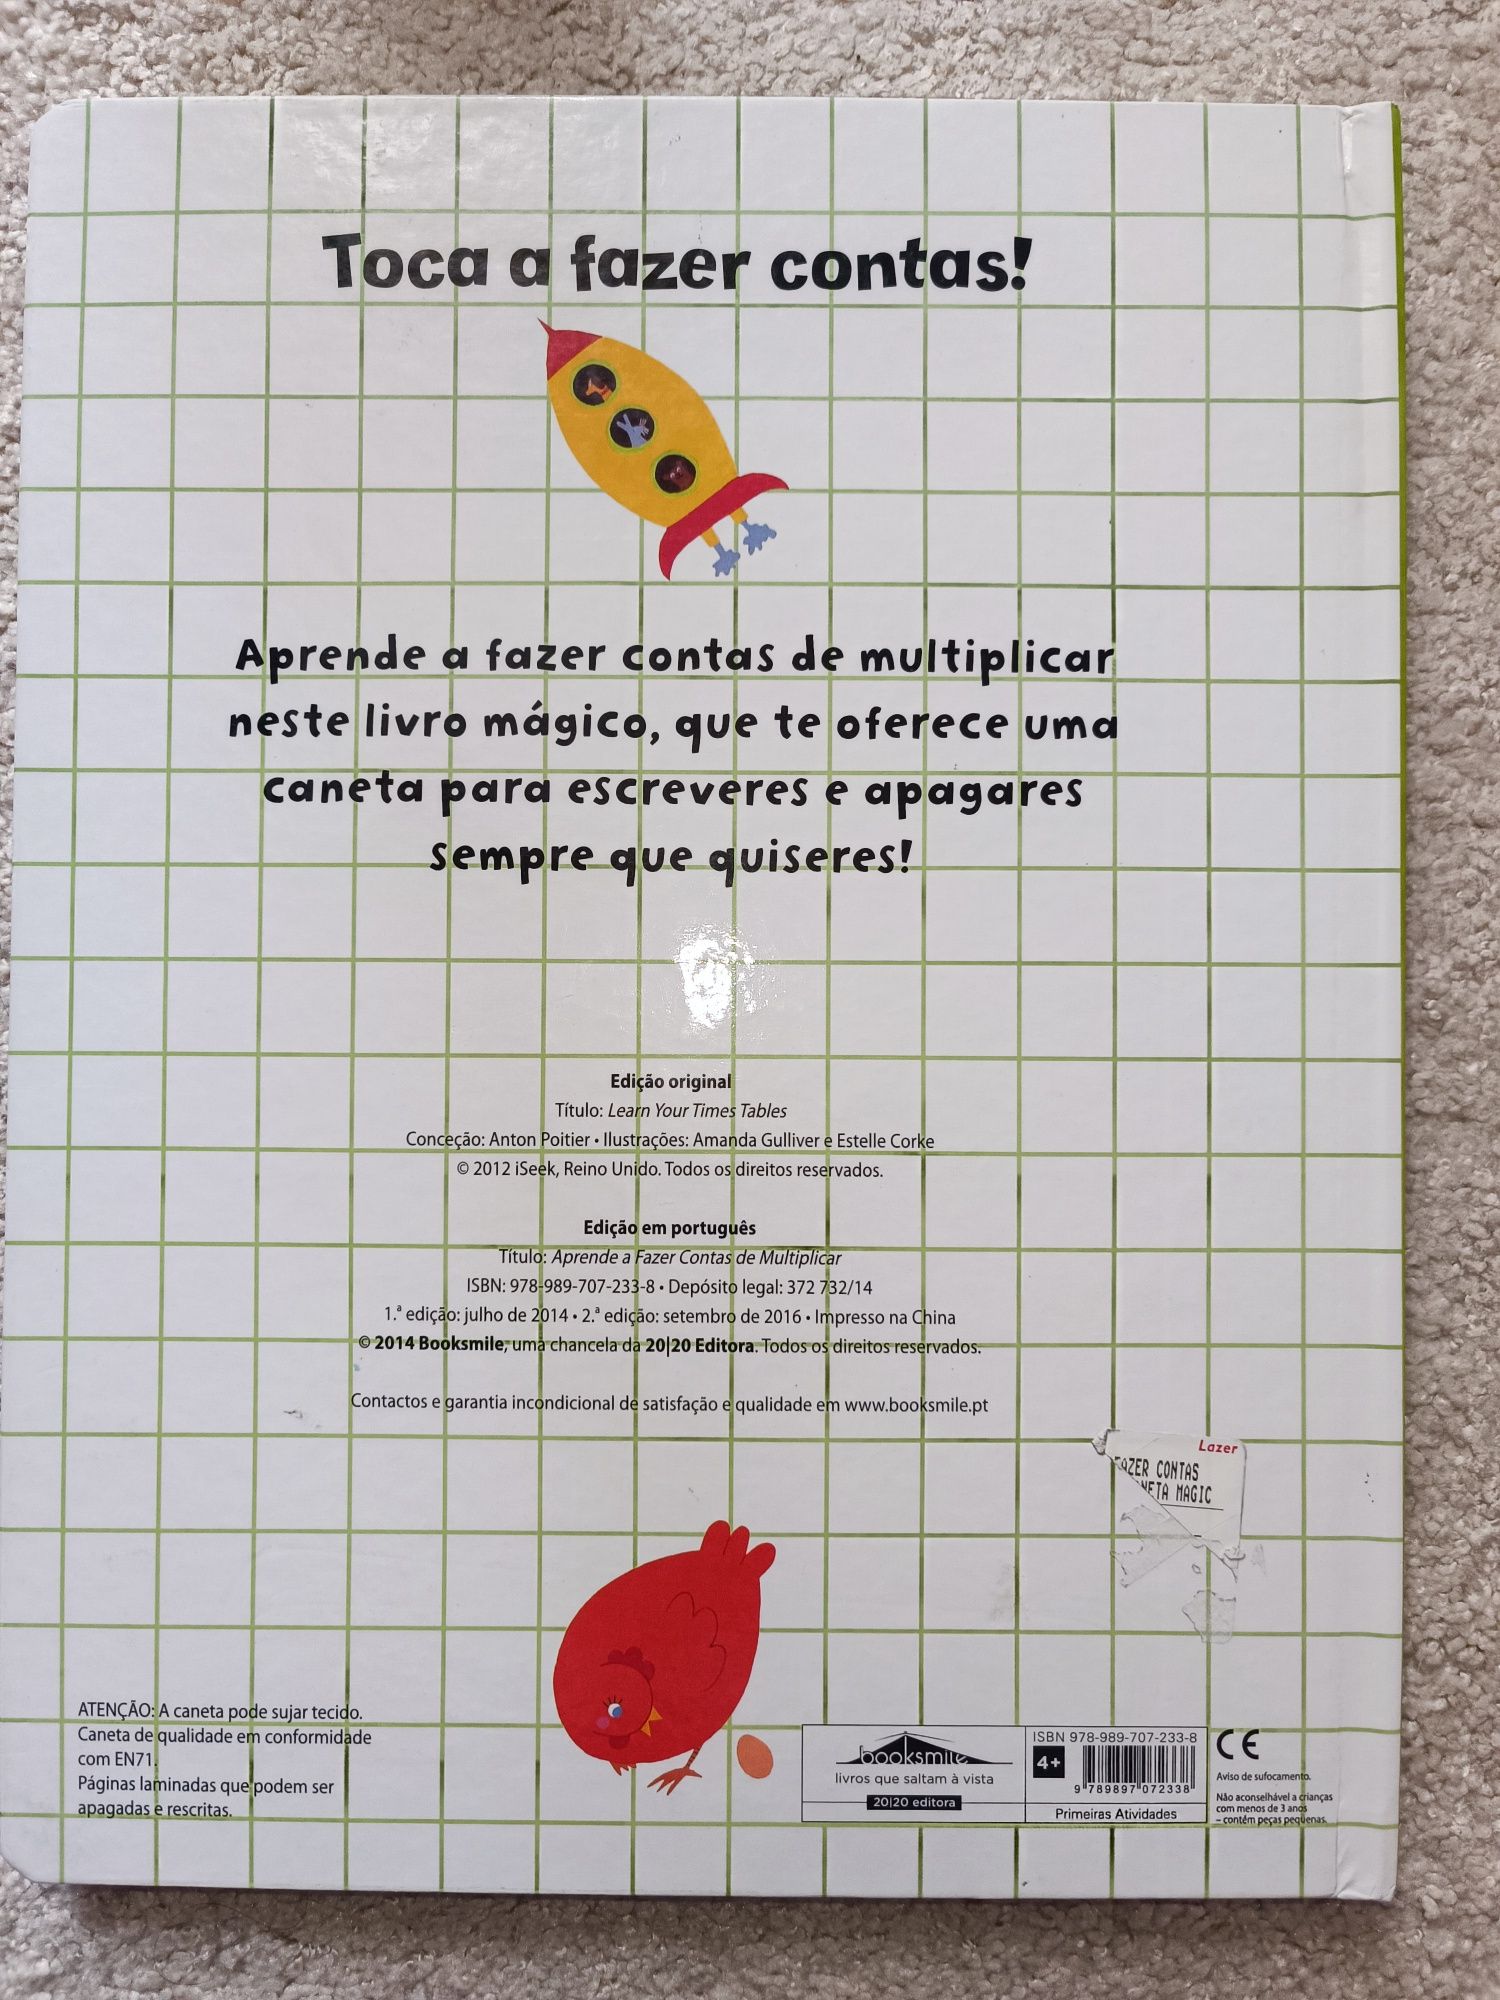 Toca a fazer contas!
Aprende a fazer contas de multiplicar
neste livro mágico, que te oferece uma
caneta para escreveres e apagares
sempre que quiseres!
Edição original
Título: Learn Your Times Tables
Conceção: Anton Poitier • Ilustrações: Amanda Gulliver e Estelle Corke
© 2012 iSeek, Reino Unido. Todos os direitos reservados.
Edição em português
Título: Aprende a Fazer Contas de Multiplicar
ISBN: 978-989-707-233-8 • Depósito legal: 372 732/14
1.ª edição: julho de 2014 • 2.ª edição: setembro de 2016 • Impresso na China
© 2014 Booksmile, uma chancela da 20|20 Editora. Todos os direitos reservados.
Contactos e garantia incondicional de satisfação e qualidade em www.booksmile.pt
Lazer
FAZER CONTAS
NETA MAGIC
ATENÇÃO: A caneta pode sujar tecido.
Caneta de qualidade em conformidade
com EN71.
Páginas laminadas que podem ser
apagadas e rescritas.
booksmile
livros que saltam à vista
20|20 editora
ISBN 978-989-707-233-8
4+
9 789897 072338
Primeiras Atividades
CE
Aviso de sufocamento.
Não aconselhável a crianças
com menos de 3 anos
– contém peças pequenas.